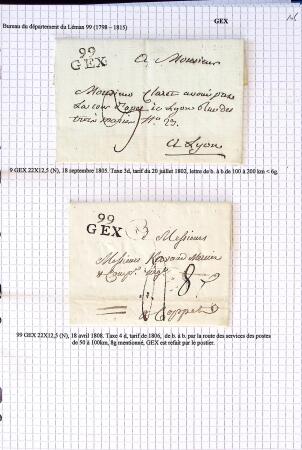 GEX
Bureau du département du Léman 99 (1798 – 1815)
99
GEX
A Monsieur
Monsieur Claret
Lyon
No 23.
A Lyon
9 GEX 22X12,5 (N), 18 septembre 1805. Taxe 3d, tarif du 20 juillet 1802, lettre de b. à b de 100 à 200 km < 6g.
99
GEX
Messieurs
Messieurs
& Comp.
8
a Coppet
99 GEX 22X12,5 (N), 18 avril 1808. Taxe 4 d, tarif de 1806, de b. à b. par la route des services des postes
de 50 à 100km, 8g mentionné, GEX est refait par le postier.